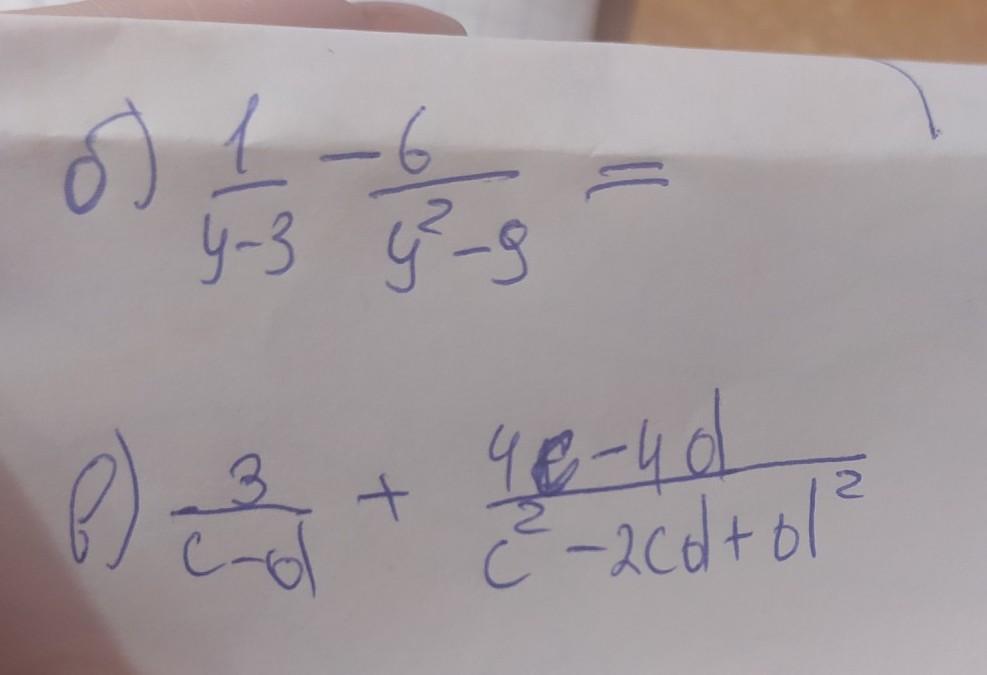 б) 1/(y-3) - 6/(y²-9) =
в) 3/(c-d) + (4c-4d)/(c²-2cd+d²)